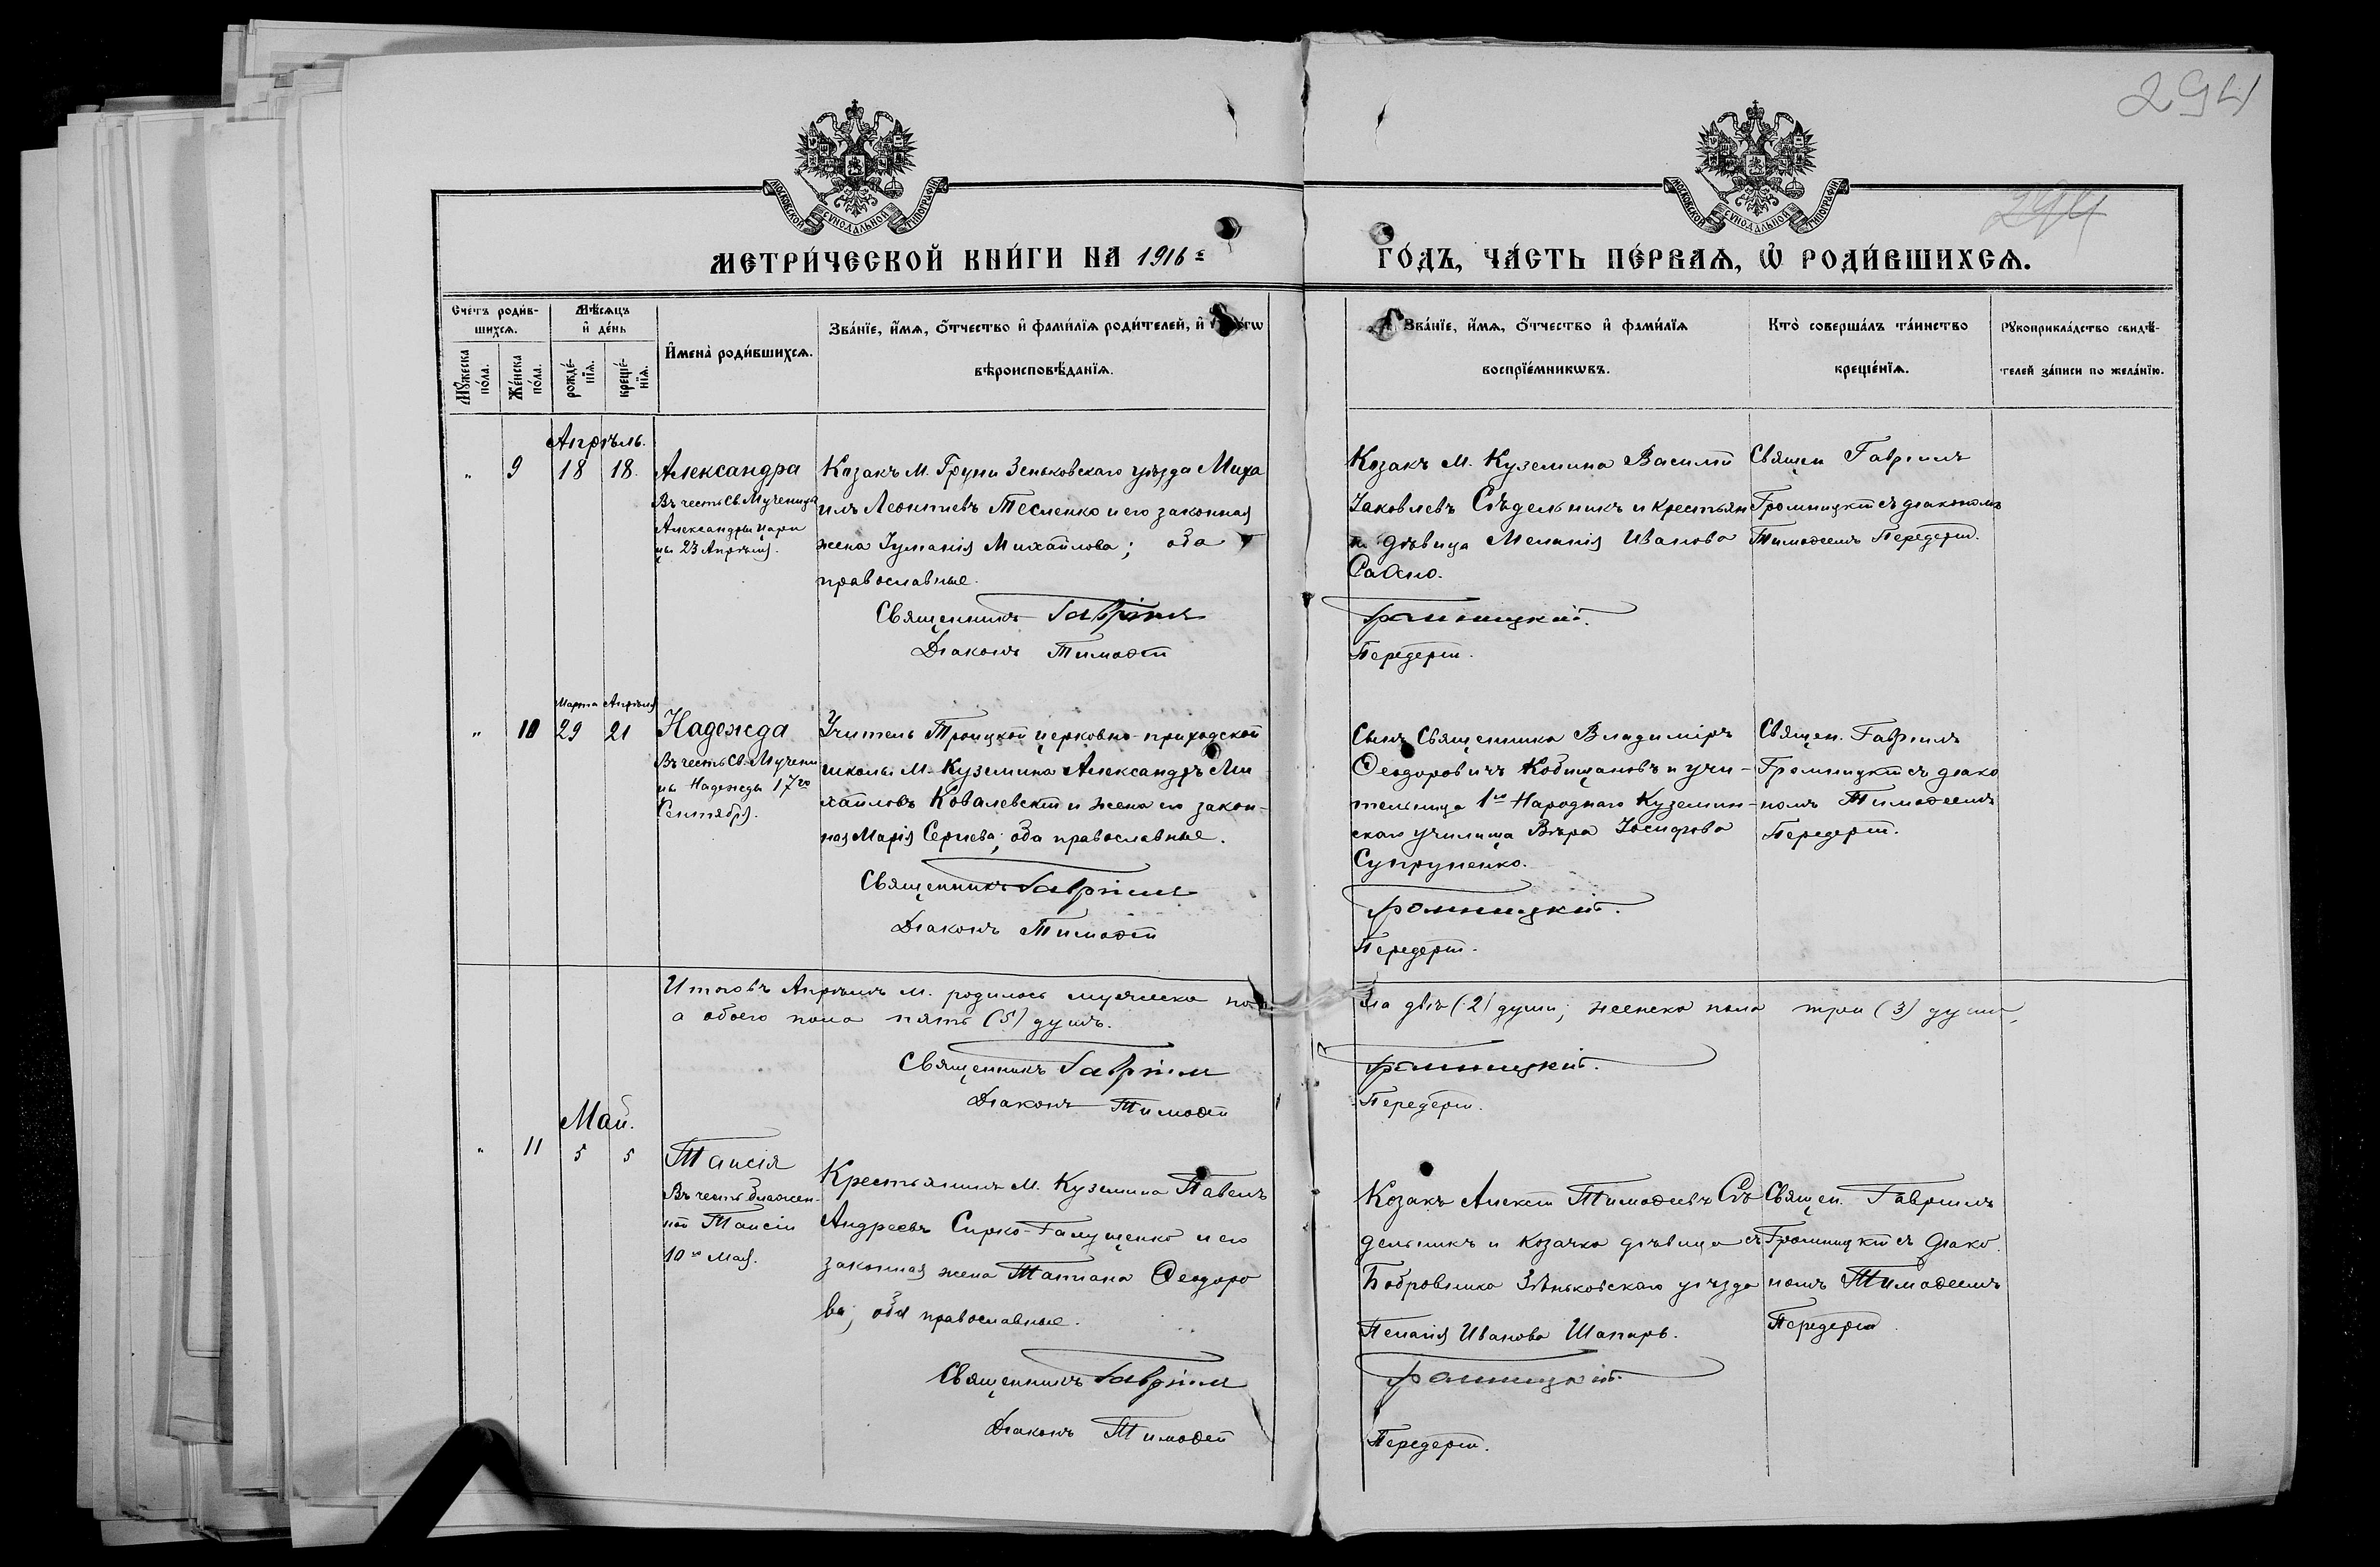 294
294
МОСКОВСКОЙ СѴНОДАЛЬНОЙ ТИПОГРАФІИ
МОСКОВСКОЙ СѴНОДАЛЬНОЙ ТИПОГРАФІИ
МЕТРИ́ЧЕСКОЙ КНИ́ГИ НА 1916 г.
ГО́ДЪ, ЧА́СТЬ ПЕ́РВАѦ, Ѽ РОДИ́ВШИХСѦ.
Счетъ роди́в-
шихсѧ.
Мѣ́сѧцъ
и̂ де́нь
Мꙋ́жеска по́ла.
Же́нска по́ла.
рожде́-нїѧ.
креще́-нїѧ.
И̂мена̀ роди́вшихсѧ.
Зва́нїе, и́мѧ, о́тчество и̂ фами́лїѧ роди́телей, и̂
вѣроисповѣ́данїѧ.
Зва́нїе, и́мѧ, о́тчество и̂ фами́лїѧ
воспрїе́мникѡвъ.
Кто̀ соверша́лъ та́инство
креще́нїѧ.
Рꙋкоприкла́дство свидѣ́-
телей за́писи по жела́нїю.
Апрѣль.
" 9 18 18.
Александра
Въ честь Св. Мученицы
Александры цари
цы 23 Апрѣля.
Козакъ М. Груни Зеньковскаго уѣзда Миха
илъ Леонтіевъ Тесленко и его законная
жена Іуліанія Михайлова; оба
православные.
Священникъ Гавріилъ
Діаконъ Тимоѳей
Козакъ М. Куземина Василій
Іаковлевъ Сѣдельникъ и крестьян
ка дѣвица Меланія Иванова
Сахно.
Громницкій.
Передерій.
Священ Гавріилъ
Громницкій съ діакономъ
Тимоѳеемъ Передерій.
Марта Апрѣля
" 10 29 21
Надежда
Въ честь Св. Мучени
цы Надежды 17го
Сентября.
Учитель Троицкой церковно-приходской
школы М. Куземина Александръ Ми
хайловъ Ковалевскій и жена его закон-
ная Марія Сергіева; оба православные.
Священникъ Гавріилъ
Діаконъ Тимоѳей
Сынъ Священника Владиміръ
Ѳеодоровичъ Кобищановъ и учи-
тельница 1го Народнаго Куземин-
скаго училища Вѣра Іосифова
Супруненко.
Громницкій.
Передерій.
Священ. Гавріилъ
Громницкій съ діако
номъ Тимоѳеемъ
Передерій.
Итого въ Апрѣлѣ м. родилось мужеска по
ла двѣ (2) души; женска пола три (3) души,
а обоего пола пять (5) душъ.
Священникъ Гавріилъ
Громницкій.
Діаконъ Тимоѳей
Передерій.
Май.
" 11 5 5
Таисія
Въ честь блажен-
ной Таисіи
10го Мая.
Крестьянинъ М. Куземина Павелъ
Андреевъ Сирко-Галущенко и его
законная жена Татіана Ѳеодоро
ва; оба православные.
Священникъ Гавріилъ
Діаконъ Тимоѳей
Козакъ Алексій Тимоѳеевъ Сѣ
дельникъ и козачка дѣвица съ
Бобровника Зѣньковскаго уѣзда
Пелагія Иванова Шапаръ.
Громницкій.
Передерій.
Священ. Гавріилъ
Громницкій съ діако
номъ Тимоѳеемъ
Передерій.